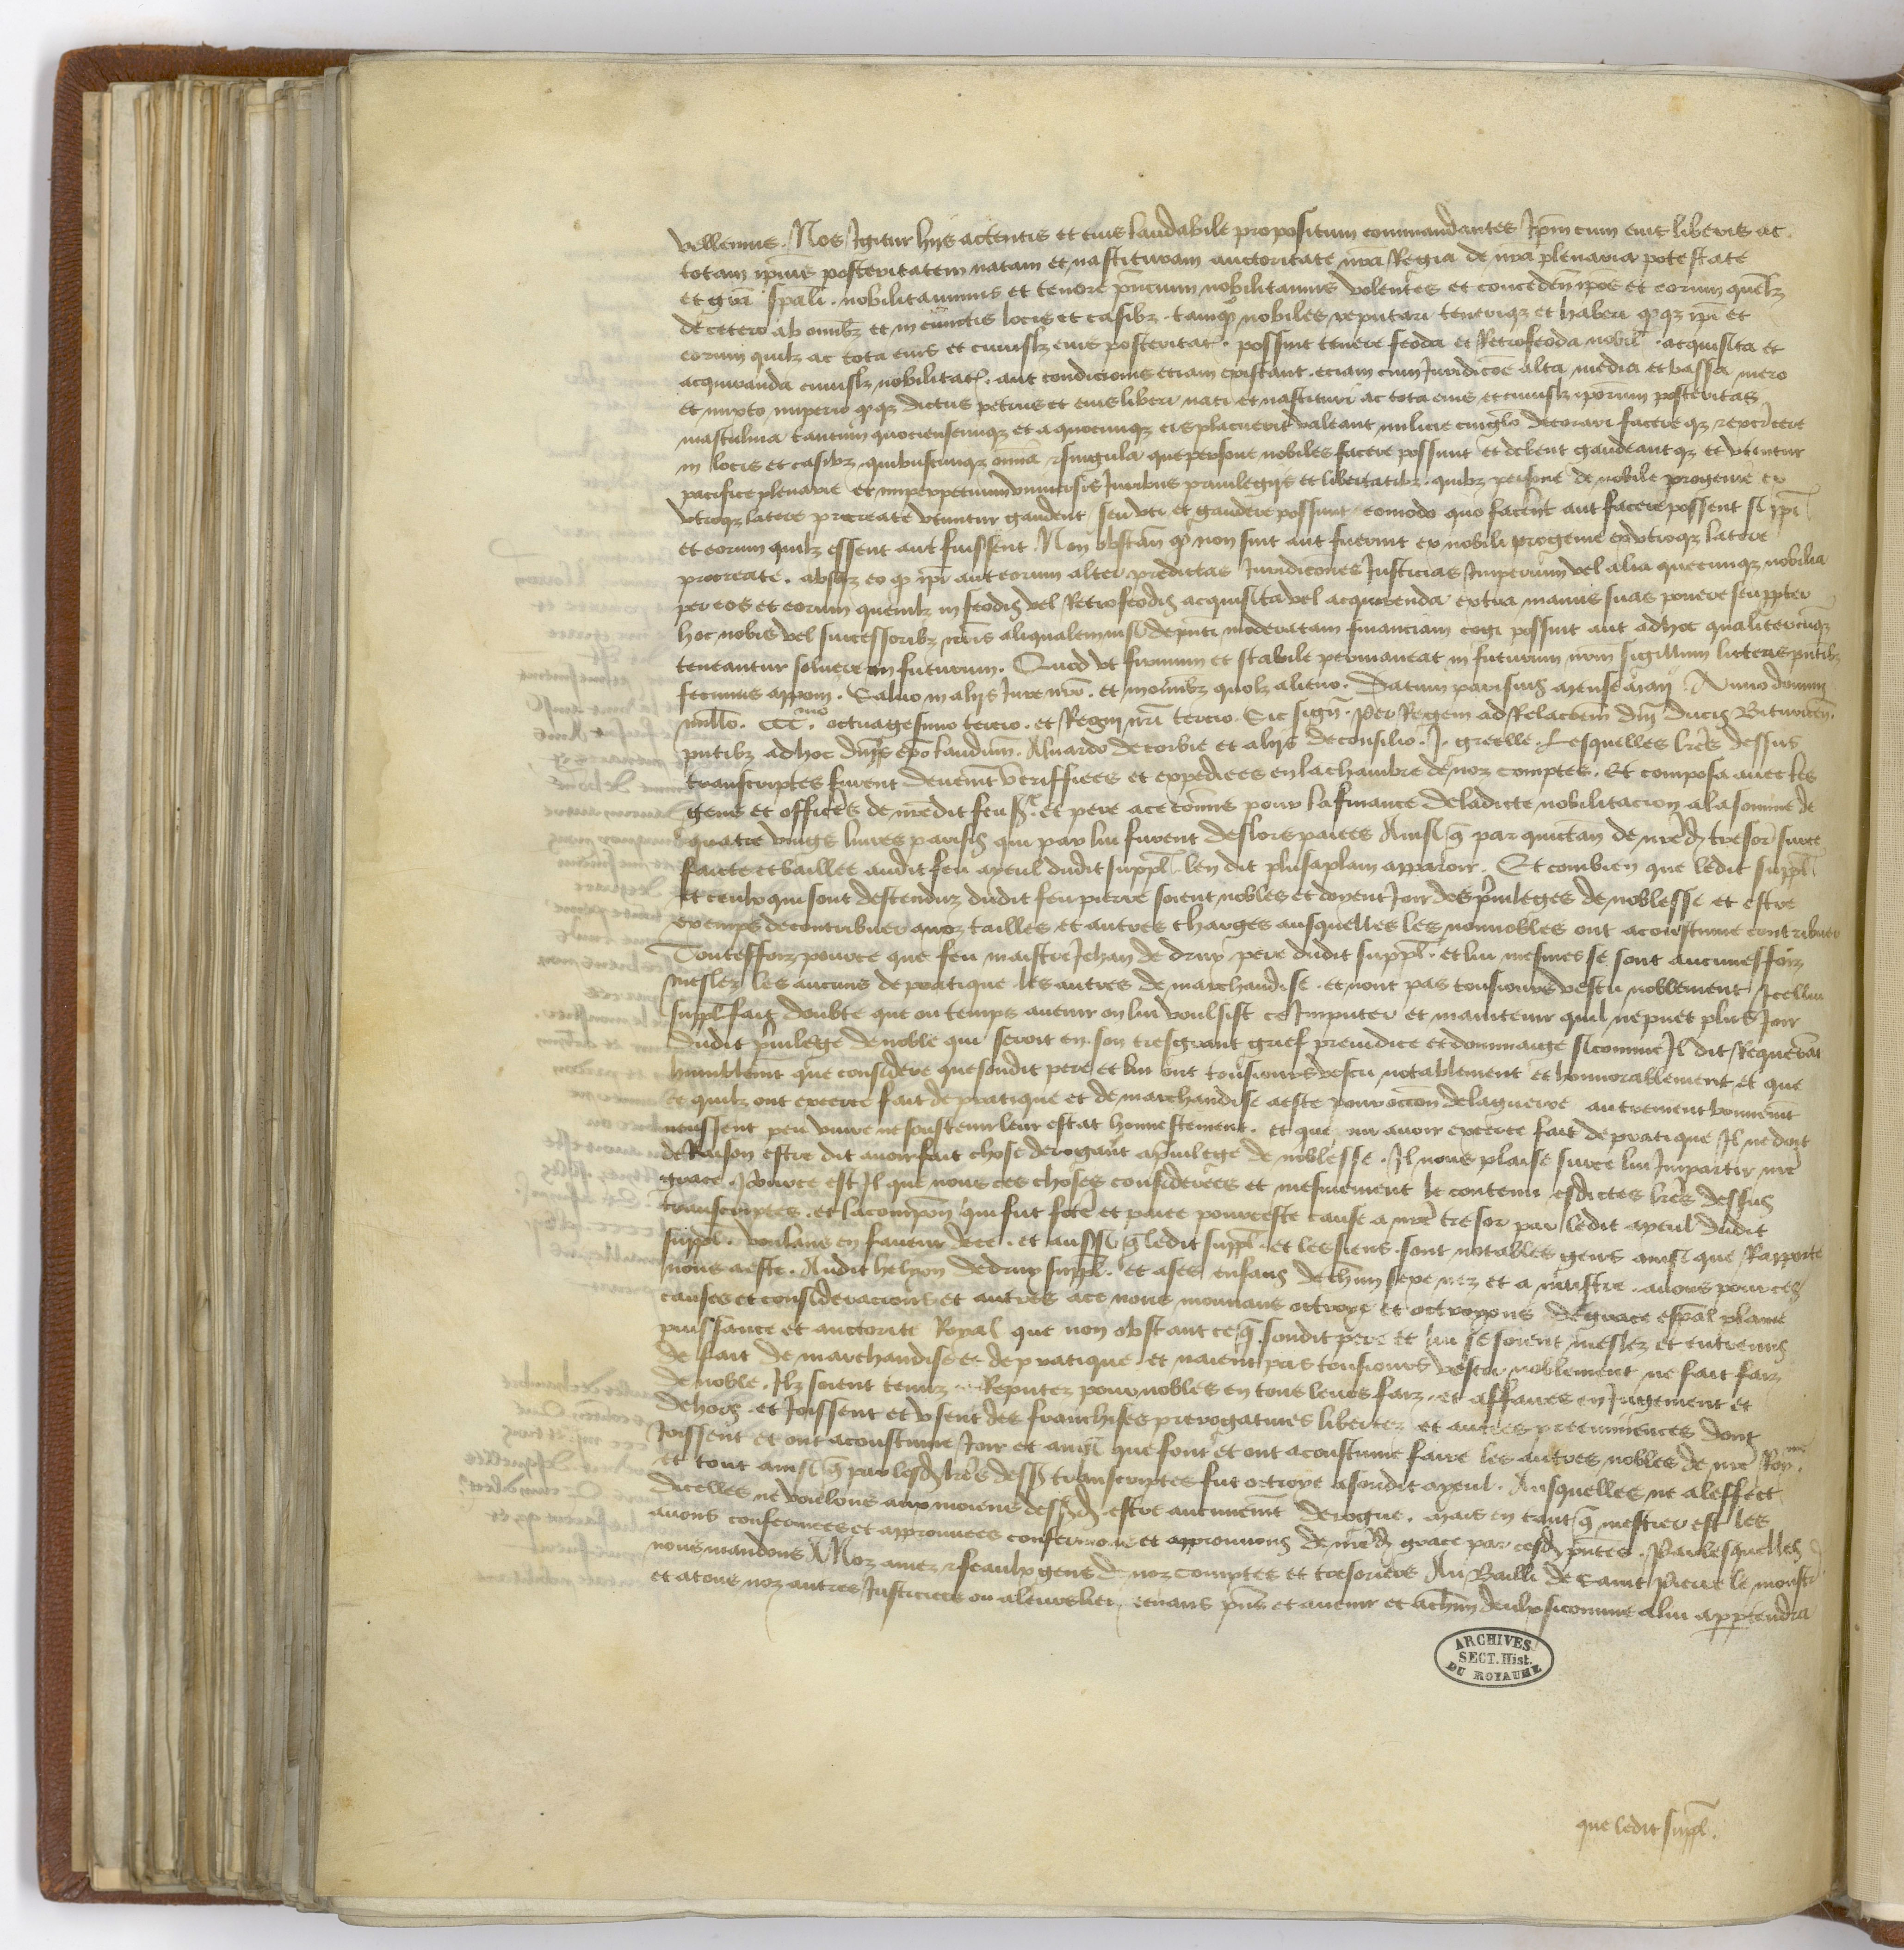 vellemus. Nos Igitur hijs attentis et eius laudabile propositum commandantes Ip̄m cum eius liberis ac
totam ip̄ius posteritatem natam et nascituram auctoritate nr̄a Regia de nr̄a plenaria potestate
et grā sp̄ali. nobilitauimus et tenore pn̄cium nobilitamus volentes et conceden̄ ip̄os et eorum quēlz
de cetero ab omībz et in cunctis locis et casibz. tamq̄ nobiles reputari teneriqz et haberi qʒ qz ip̄i et
eorum quilz ac tota eius et cuiuslz eius posteritas. possint tenere feoda et Retrofeoda nobil̄. acquisita et
acquirenda cuiuslz nobilitat̄. aut condicionis eciam existant. eciam cum Iuridicōe alta media et bassa mero
et mixto imperio qʒ qz dictus petrus et eius liberi nati et nascituri ac tota eius et cuiuslz ip̄orum posteritas
masculina tantum quocienscunqz et a quocunqz eis placuerit valeant milicie cinglo decorari facere qz et excercere
in locis et casibz quibuscunqz om̄ia et singula que persone nobiles facere possunt et debent gaudeant qz et vtentur
pacifice plenarie et imperpetuum vniuersis Iuribus priuilegijs et libertatibz. quibz persone de nobile progenie ex
vtroqz latere procreate vtuntur gaudent seu vti et gaudere possunt eomodo quo facerēt aut facere possent si ip̄i
et eorum quilz essent aut fuissent. Non obstan̄ qʒ non sint aut fuerint ex nobili progenie ex vtroqz latere
procreate. absqz eo qʒ ip̄i aut eorum alter predictas Iuridicōnes Iusticias Imperium vel alia quecunqz nobilia
per eos et eorum quemlz in feodis vel Retrofeodis acquisita vel acquirenda extra manus suas ponere seu ppter
hoc nobis vel successoribz nr̄is aliqualem nisi de pn̄ti moderatam financiam cogi possint aut adhoc qualitercūqz
teneantur soluere in futurum. Quod vt firmum et stabile permaneat in futurum nr̄m sigillum litteris pn̄tibz
fecimus appon̄. Saluo in alijs Iure nr̄o. et in omībz quolz alieno. Datum parisius mense maij Anno domini
mill̄o. CCC.mo octuagesimo tercio. et Regni nr̄i tercio. Sic sign̄. Per Regem ad Relacōem dn̄i ducis Bituricen̄.
pn̄tibz adhoc dn̄is ep̄o laudun̄. Alnardo de corbie et alijs de consilio. J. greelle. Lesquelles lr̄es dessus
transcriptes furent deuemēt veriffiees et expediees en la chambre de noz comptes. Et composa auecles
gens et officiers de nr̄edit feu Sr̄. et pere ace commis pour la finance de ladicte nobilitacion a la somme de
quatre vings liures parisis qui par lui furent deslors paiees Ainsi q̄ par quictan̄ de nr̄ed tresor sur ce
faicte et baillee audit feu ayeul dudit suppl̄ len dit plus a plain apparoir. Et combien que ledit suppl̄
et ceulx qui sont descenduz dudit feu pierre soient nobles et doyent Joir des priuileges de noblesse et estre
exemps de contribuer a noz tailles et autres charges ausquelles les nonnobles ont acoustume contribuer
Toutesfoiz pource que feu maistre Jehan de drux pere dudit suppl̄. et lui mesmes se sont aucunesfoiz
meslez les aucuns de pratique les autres de marchandise. et nont pas tousiours vescu noblement Icellui
suppl̄ fait doubte que ou temps auenir on lui voulsist ce Imputer et maintenir quil ne puet plus Joir
dudit priuilege de noble qui seroit en son tresgrant grief preiudice et dommaige si comme Il dit Requerāt
humblemēt que considere que sondit pere et lui ont tousiours vescu notablement et honnorablement et que
ce quilz ont exerce fait de pratique et de marchandise a este pour occōn de la guerre autrement bonnemēt
neussent peu viure ne soustenir leur estat honnestement. et que ... auoir exerce fait de pratique Il ne doit
de Raison estre dit auoir fait chose derogant a priuilege de noblesse. Il nous plaise sur ce lui Impartir nr̄e
grace. Pource est Il que nous ces choses considerees et mesmement le contenu esdictes lr̄es dessus
transcriptes. et la composn̄ qui fut fcē et paiee pour ceste cause a nr̄e tresor par ledit ayeul dudit
suppl̄. voulans en faueur de ce. et aussi q̄ ledit suppl̄. et les siens. sont notables gens ainsi que Rapporte
nous a este. Audit helyon de drux suppl̄. et a ses enfans de chūn sexe nez et a naistre. auons pour ces
causes et consideracions et autres ace nous mouuans octroye et octroyons de grace esp̄al plaine
puissance et auctorite Royal que non obstant ce q̄. sondit pere et lui se soient meslez et entremis
de fait de marchandise et de pratique et naient pas tousiours vescu noblement ne fait faiz
de noble. Ilz soient tenuz. Reputez pour nobles en tous leurs faiz. et affaires en Jugement et
dehors. et Joissent et vsent des franchises prerogatiues libertez et autres preeminences dont
Joissent et ont acoustume Joir et ainsi que font et ont acoustume faire les autres nobles de nr̄e Roy.me
et tout ainsi q̄ par lesd lr̄es dess transcriptes fut octroye asondit ayeul. Ausquelles ne a leffect
dicelles ne voulons aux moiens dessd estre aucunemēt derogue. mais en tant q̄ mestier est les
auons confermees et approuuees confermons et approuuons de nr̄ed grace par cesd pn̄tes. Par lesquelles
nous mandons A Noz amez et feaulx gens de noz comptes et tresoriers Au Bailli de saint Pierre le moustr̄
et a tous noz autres Justiciers ou a leurs lieuxtenans pn̄s et auenir et a chūn deulx si comme a lui appartendra
ARCHIVES
SECT. Hist.
DU ROYAUME
que ledit suppl̄.